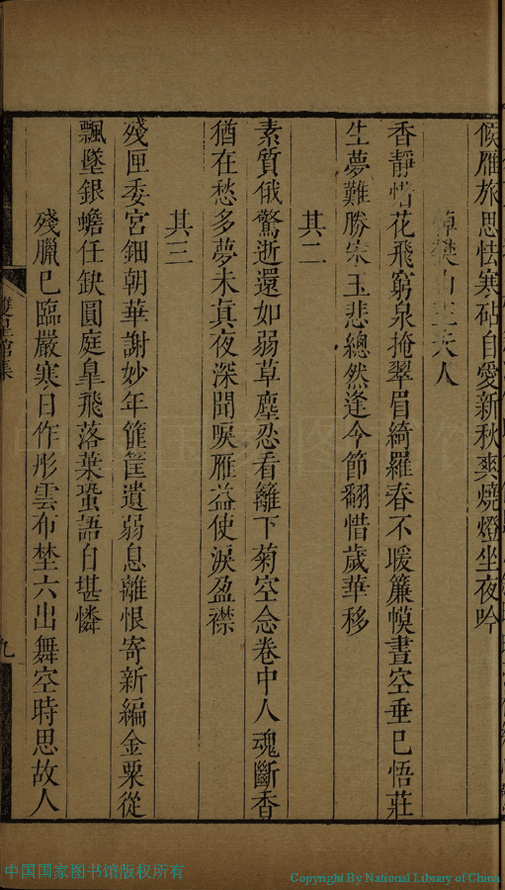 候雁旅思怯寒砧自愛新秋爽燒燈坐夜吟
悼樊山王夫人
香靜惜花飛窮泉掩翠眉綺羅春不暖簾幙晝空垂已悟莊
生夢難勝宋玉悲總然逢今節翻惜歲華移
其二
素質俄驚逝還如弱草塵忍看籬下菊空念卷中人魂斷香
猶在愁多夢未真夜深聞唳雁益使淚盈襟
其三
殘匣委宮鈿朝華謝妙年篚筐遺弱息離恨寄新編金粟從
飄墜銀蟾任缺圓庭臯飛落葉蛩語自堪憐
殘臘已臨嚴寒日作彤雲布埜六出舞空時思故人
館集
九
中国国家图书馆版权所有
Copyright By National Library of China